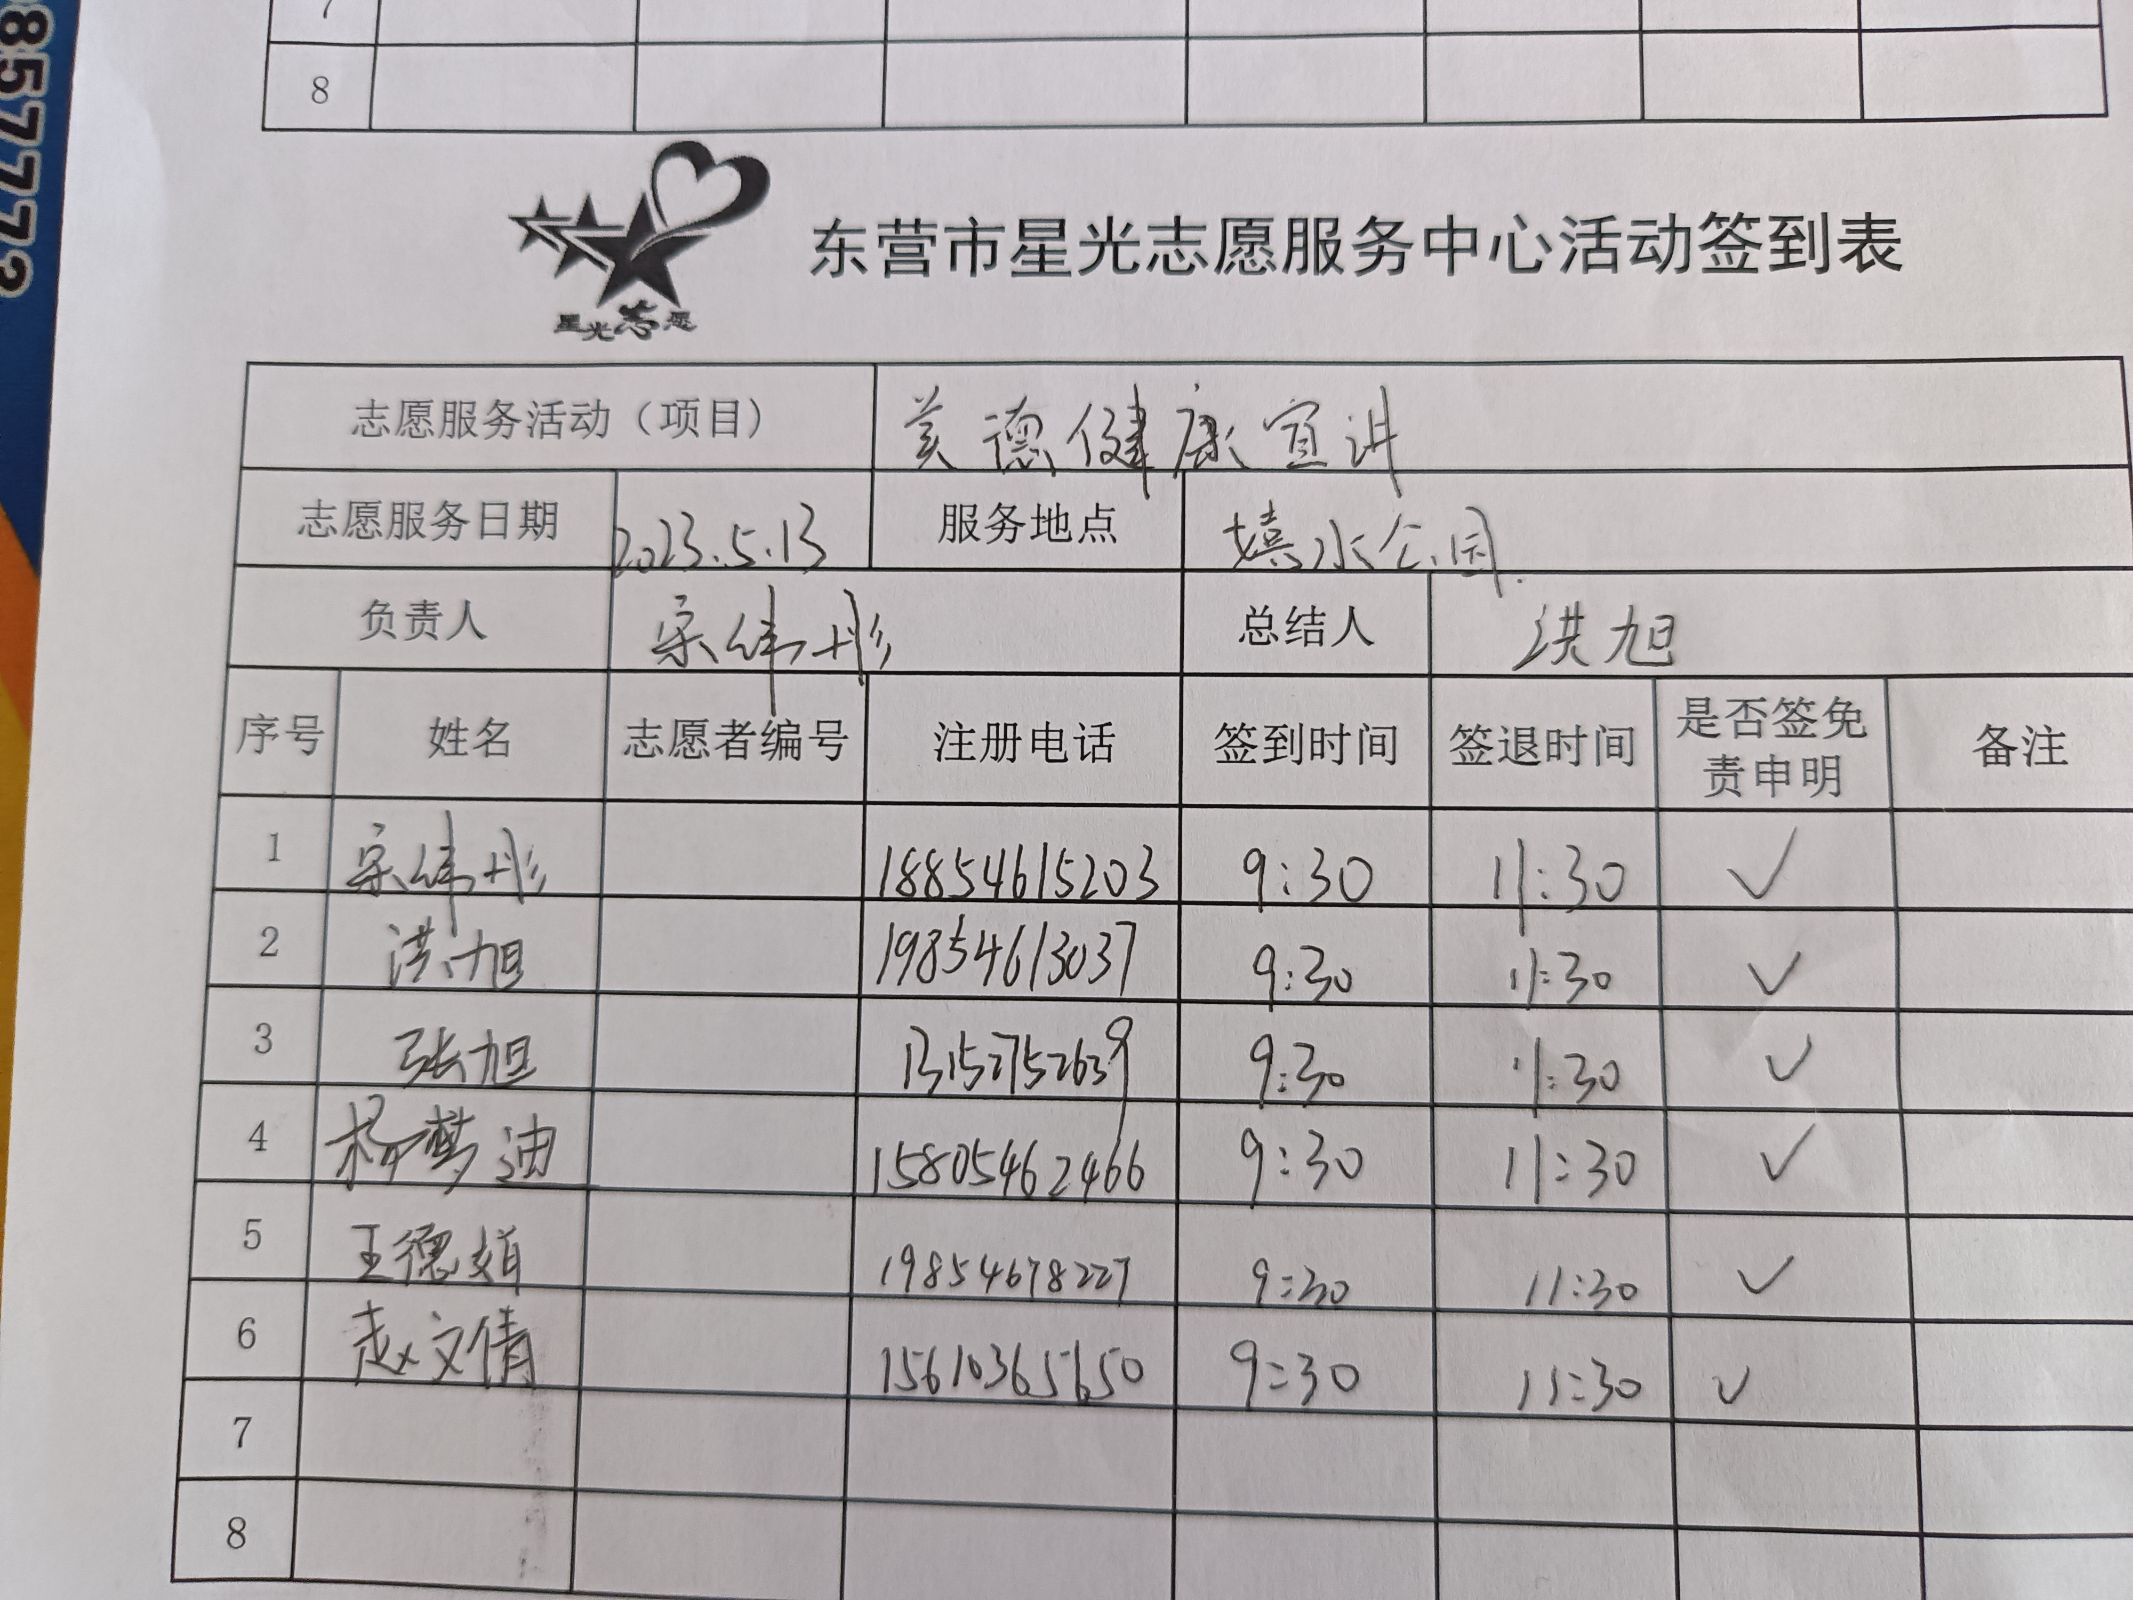 8577772
7
8
星光志愿
东营市星光志愿服务中心活动签到表
志愿服务活动（项目） 美德健康宣讲
志愿服务日期 2023.5.13 服务地点 嬉水公园
负责人 宋纬彤 总结人 洪旭
序号 姓名 志愿者编号 注册电话 签到时间 签退时间 是否签免责申明 备注
1 宋纬彤 18854615203 9:30 11:30 ✓
2 洪旭 19854613037 9:30 11:30 ✓
3 张旭 13152752639 9:30 11:30 ✓
4 杨梦迪 15805462466 9:30 11:30 ✓
5 王德娟 19854678227 9:30 11:30 ✓
6 赵文倩 15610365650 9:30 11:30 ✓
7
8